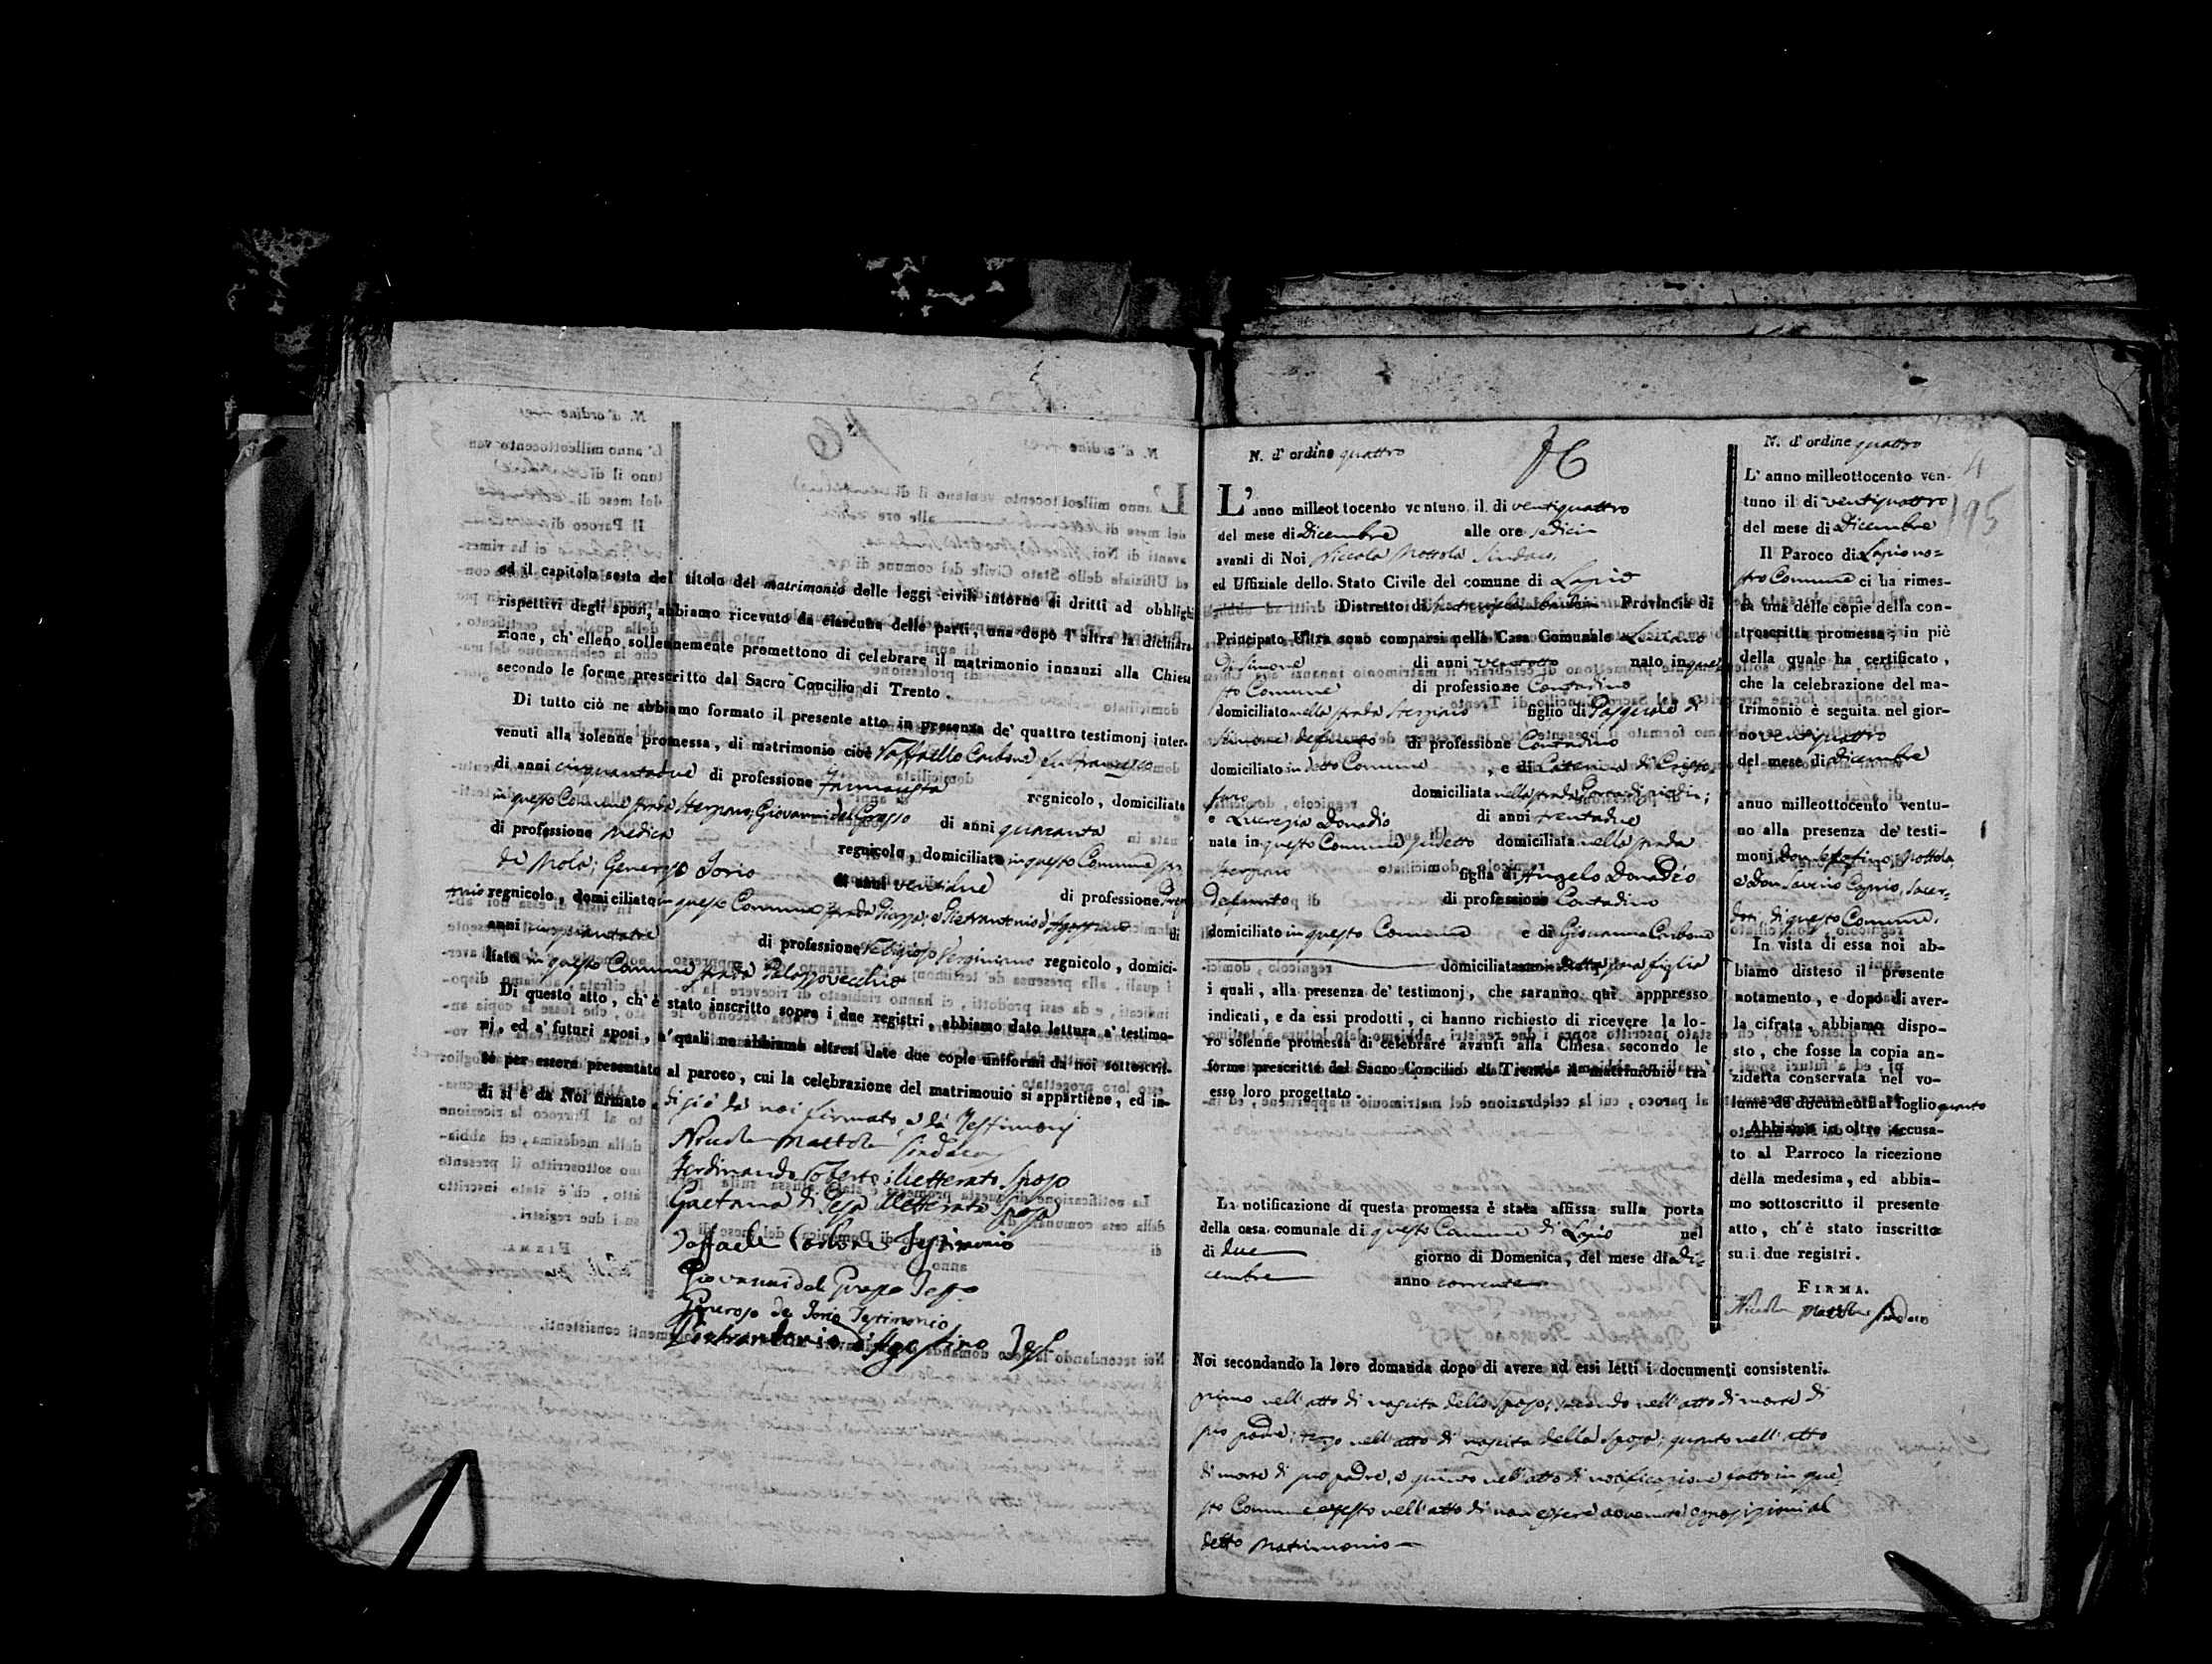 ed il capitolo sesto del titolo del matrimonio delle leggi civili intorno ai dritti ad obblighi
rispettivi degli sposi, abbiamo ricevuto da ciascuna delle parti, una dopo l'altra la dichiara-
zione, ch'elleno solennemente promettono di celebrare il matrimonio innanzi alla Chiesa
secondo le forme prescritto dal Sacro Concilio di Trento.
Di tutto ciò ne abbiamo formato il presente atto in presenza de' quattro testimonj inter-
venuti alla solenne promessa, di matrimonio cioè Raffaello Carbone fu Francesco
di anni cinquantadue di professione regnicolo, domiciliato
in questo Comune strada Giovanni del Grosso di anni quaranta
di professione Medico regnicolo, domiciliato in questo Comune
di Mola; Generoso Iorio di anni ventidue di professione
regnicolo, domiciliato in questo Comune strada Piazza, e Pietrantonio d'Agostino di
anni cinquantatre di professione Religioso Verginiano regnicolo, domici-
liato in questo Comune strada Palazzovecchio
Di questo atto, ch'è stato inscritto sopra i due registri, abbiamo dato lettura a' testimo-
nj, ed a' futuri sposi, a' quali ne abbiamo altresì date due copie uniformi da noi sottoscrit-
te per essere presentate al paroco, cui la celebrazione del matrimonio si appartiene, ed in-
di si è da Noi firmato. Si è da noi firmato, e da Testimonj
Nicola Mottola Sindaco
Ferdinando illetterato Sposo
Gaetana di illetterata Sposa
Raffaele Carbone Testimonio
Giovanni del Grosso Test.
Generoso de Iorio Testimonio
Pietrantonio d'Agostino Test.
N. d'ordine quattro
L'anno milleottocento ventuno il dì ventiquattro
del mese di Dicembre alle ore sedici
avanti di Noi Niccola Mottola Sindaco,
ed Uffiziale dello Stato Civile del comune di Lapio
Distretto di Provincia di
Principato Ultra sono comparsi nella Casa Comunale Luciano
di Simone di anni ventotto nato in que-
sto Comune di professione Contadino
domiciliato nella strada figlio di Pasquale di
Simone defunto di professione Contadino
domiciliato in detto Comune, e di Caterina di Cristo-
faro domiciliata nella strada;
e Lucrezia Donadio di anni trentadue
nata in questo Comune domiciliata nella strada
figlia di Angelo Donadio
defunto di professione Contadino
domiciliato in questo Comune e di Giovanna Carbone
domiciliata
i quali, alla presenza de' testimonj, che saranno quì apppresso
indicati, e da essi prodotti, ci hanno richiesto di ricevere la lo-
ro solenne promessa di celebrare avanti alla Chiesa secondo le
forme prescritte dal Sacro Concilio di Trento il matrimonio tra
esso loro progettato.
La notificazione di questa promessa è stata affissa sulla porta
della casa comunale di questo Comune di Lapio nel
dì due giorno di Domenica, del mese di Di-
cembre anno corrente
Noi secondando la loro domanda dopo di avere ad essi letti i documenti consistenti.
primo nell'atto di nascita dello sposo; secondo nell'atto di morte di
suo padre; terzo nell'atto di nascita della sposa; quarto nell'atto
di morte di suo padre, e quinto nell'atto di notificazione fatto in que-
sto Comune, e sesto nell'atto di non essere avvenute opposizioni al
detto matrimonio
N. d'ordine quattro
4
195
L'anno milleottocento ven-
tuno il dì ventiquattro
del mese di Dicembre
Il Paroco di Lapio no-
stro Comune ci ha rimes-
sa una delle copie della con-
troscritta promessa; in piè
della quale ha certificato,
che la celebrazione del ma-
trimonio è seguita nel gior-
no ventiquattro
del mese di Dicembre
anno milleottocento ventu-
no alla presenza de' testi-
monj Don Mottola
e Don Saverio Caprio, Sacer-
doti, di questo Comune.
In vista di essa noi ab-
biamo disteso il presente
notamento, e dopo di aver-
la cifrata, abbiamo dispo-
sto, che fosse la copia an-
zidetta conservata nel vo-
lume de documenti al foglio quarto
Abbiamo in oltre accusa-
to al Parroco la ricezione
della medesima, ed abbia-
mo sottoscritto il presente
atto, ch'è stato inscritto
su i due registri.
FIRMA.
Nicola Mottola Sindaco